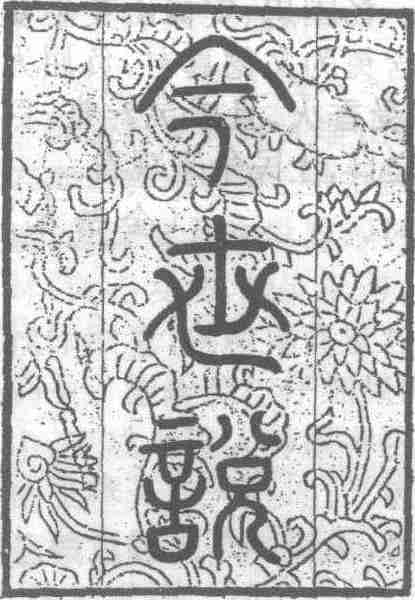 今世說